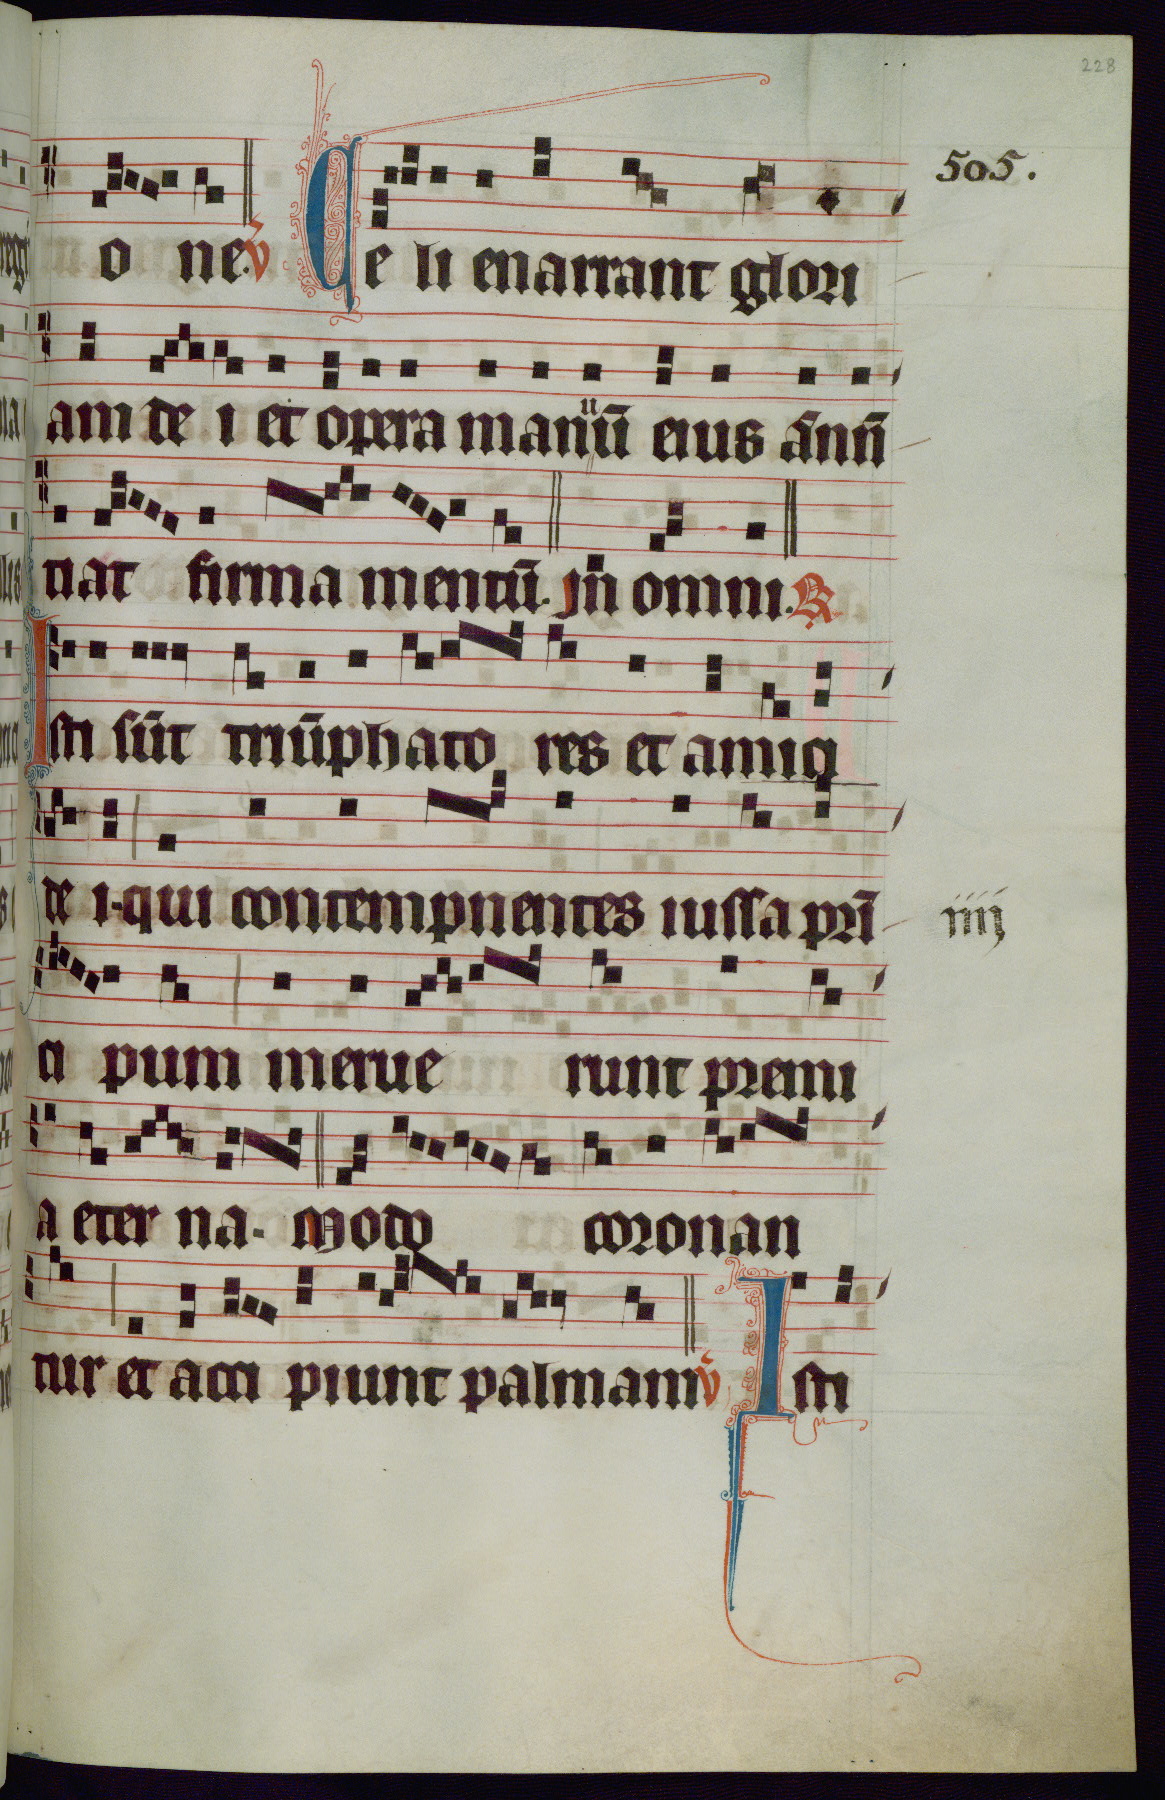 228
505.
o ne. v̄ Ce li enarrant glori
am de i et opera manuū eius anñū
tiat firma mentū. In omni. R
Isti sūt triūphato res et amici
de i. qui contempnentes iussa prī
iiij
ci pum merue runt premi
a eter na. Modo coronan
tur et acci piunt palmam v̄ Isti